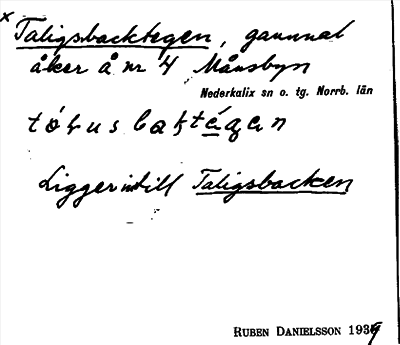 x Taligsbacktegen, gammal
åker å nr 4 Månsbyn
Nederkalix sn o. tg. Norrb. län
Ligger intill Taligsbacken
RUBEN DANIELSSON 1939